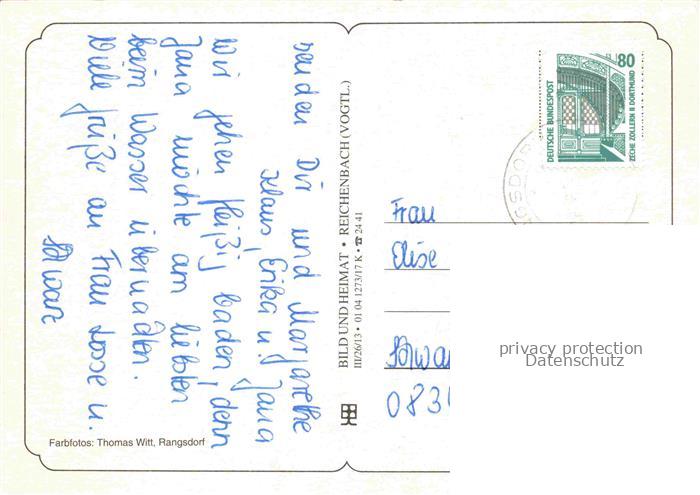 senden Dir und Margarethe
Klaus, Erika u. Jana
Wir gehen fleißig baden, denn
Jana möchte am liebsten
beim Wasser übernachten.
Viele Grüße an Frau u.
Schwarz
Farbfotos: Thomas Witt, Rangsdorf
BILD UND HEIMAT • REICHENBACH (VOGTL.)
III/26/13 • 01 04 1273/17 K • ☎ 24 41
80
DEUTSCHE BUNDESPOST
ZECHE ZOLLERN II DORTMUND
Frau
Elise
Schwa
083
privacy protection
Datenschutz